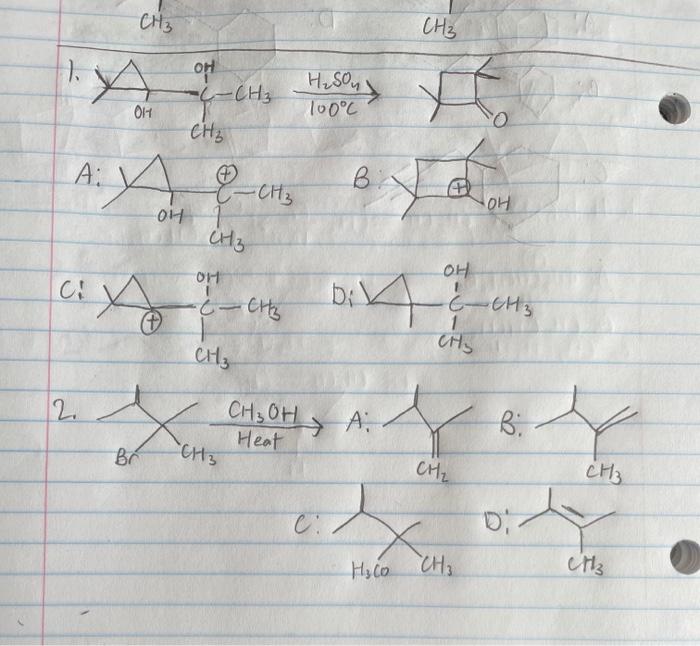 CH₃ CH₃
1. OH OH C CH₃ CH₃ H₂SO₄ 100°C O
A: OH + C CH₃ CH₃ B: + OH
C: + OH C CH₃ CH₃ D: OH C CH₃ CH₃
2. Br CH₃ CH₃OH Heat A: CH₂ B: CH₃
C: H₃CO CH₃ D: CH₃